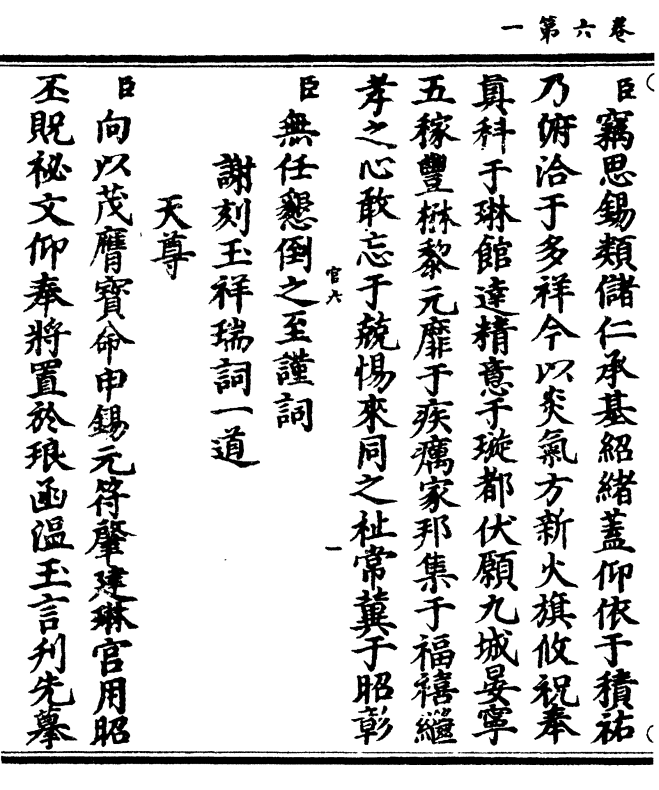 卷六第一
臣竊思錫類儲仁承基紹緒蓋仰依于積祐
乃俯洽于多祥今以炎氣方新火旗攸祝奉
真科于琳館達精意于璇都伏願九城晏寧
五稼豐楙黎元靡于疾癘家邦集于福禧繼
孝之心敢忘于兢惕來同之祉常冀于昭彰
臣無任懇倒之至謹詞
官六
一
謝刻玉祥瑞詞一道
天尊
臣向以茂膺寶命申錫元符肇建琳宮用昭
丕貺祕文仰奉將置於琅函溫玉言刋先摹